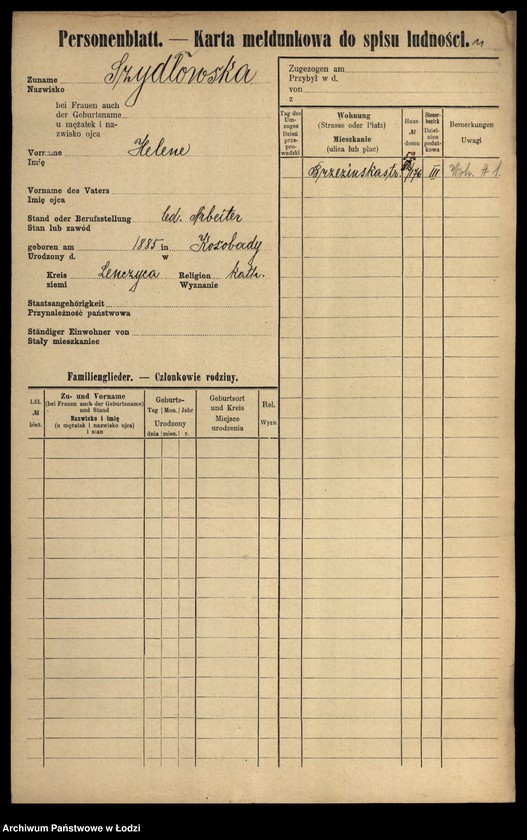 Personenblatt. — Karta meldunkowa do spisu ludności.
Zuname Szydłowska
Nazwisko
bei Frauen auch
der Geburtsname
u mężatek i na-
zwisko ojca
Vorname Helene
Imię
Vorname des Vaters
Imię ojca
Stand oder Berufsstellung led. Arbeiter
Stan lub zawód
geboren am 1885 in Kosobady
Urodzony d. w
Kreis Lenczyca Religion kath.
ziemi Wyznanie
Staatsangehörigkeit
Przynależność państwowa
Ständiger Einwohner von
Stały mieszkaniec
Familienglieder. — Członkowie rodziny.
Lfd. № bież.
Zu- und Vorname
(bei Frauen auch der Geburtsname)
und Stand
Nazwisko i imię
(u mężatek i nazwisko ojca)
i stan
Geburts-
Tag Mon. Jahr
Urodzony
dnia mies. r.
Geburtsort
und Kreis
Miejsce
urodzenia
Rel.
Wyzn.
Zugezogen am
Przybył w d.
von
z
Tag des
Um-
zuges
Dzień
prze-
pro-
wadzki
Wohnung
(Strasse oder Platz)
Mieszkanie
(ulica lub plac)
Haus-
№
domu
Steuer-
bezirk
Dziel-
nica
podat-
kowa
Bemerkungen
Uwagi
Brzezinskastr. 76 III Woh. # 1.
Archiwum Państwowe w Łodzi